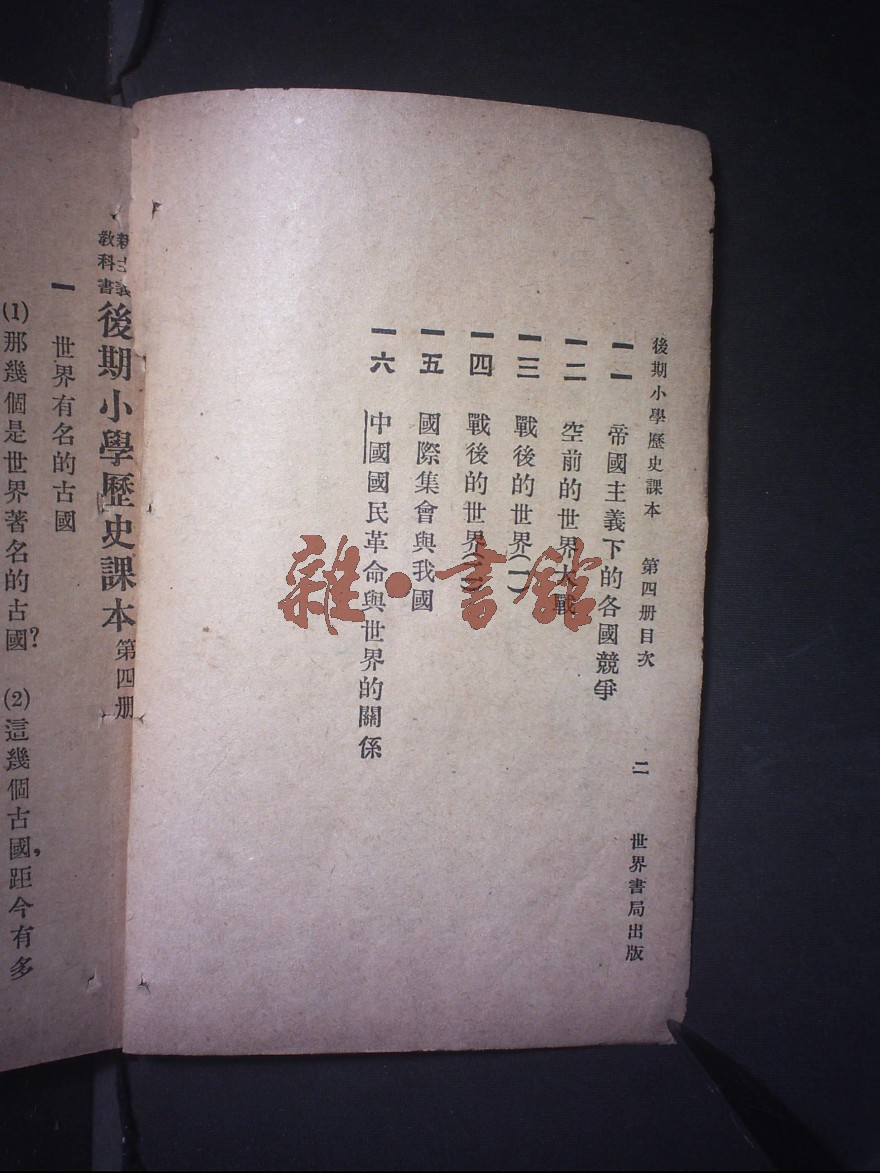 後期小學歷史課本 第四册目次 二 世界書局出版
一一 帝國主義下的各國競爭
一二 空前的世界大戰
一三 戰後的世界(一)
一四 戰後的世界(二)
一五 國際集會與我國
一六 中國國民革命與世界的關係
雜·書館
新主義
教科書
後期小學歷史課本 第四册
一 世界有名的古國
(1)那幾個是世界著名的古國? (2)這幾個古國,距今有多